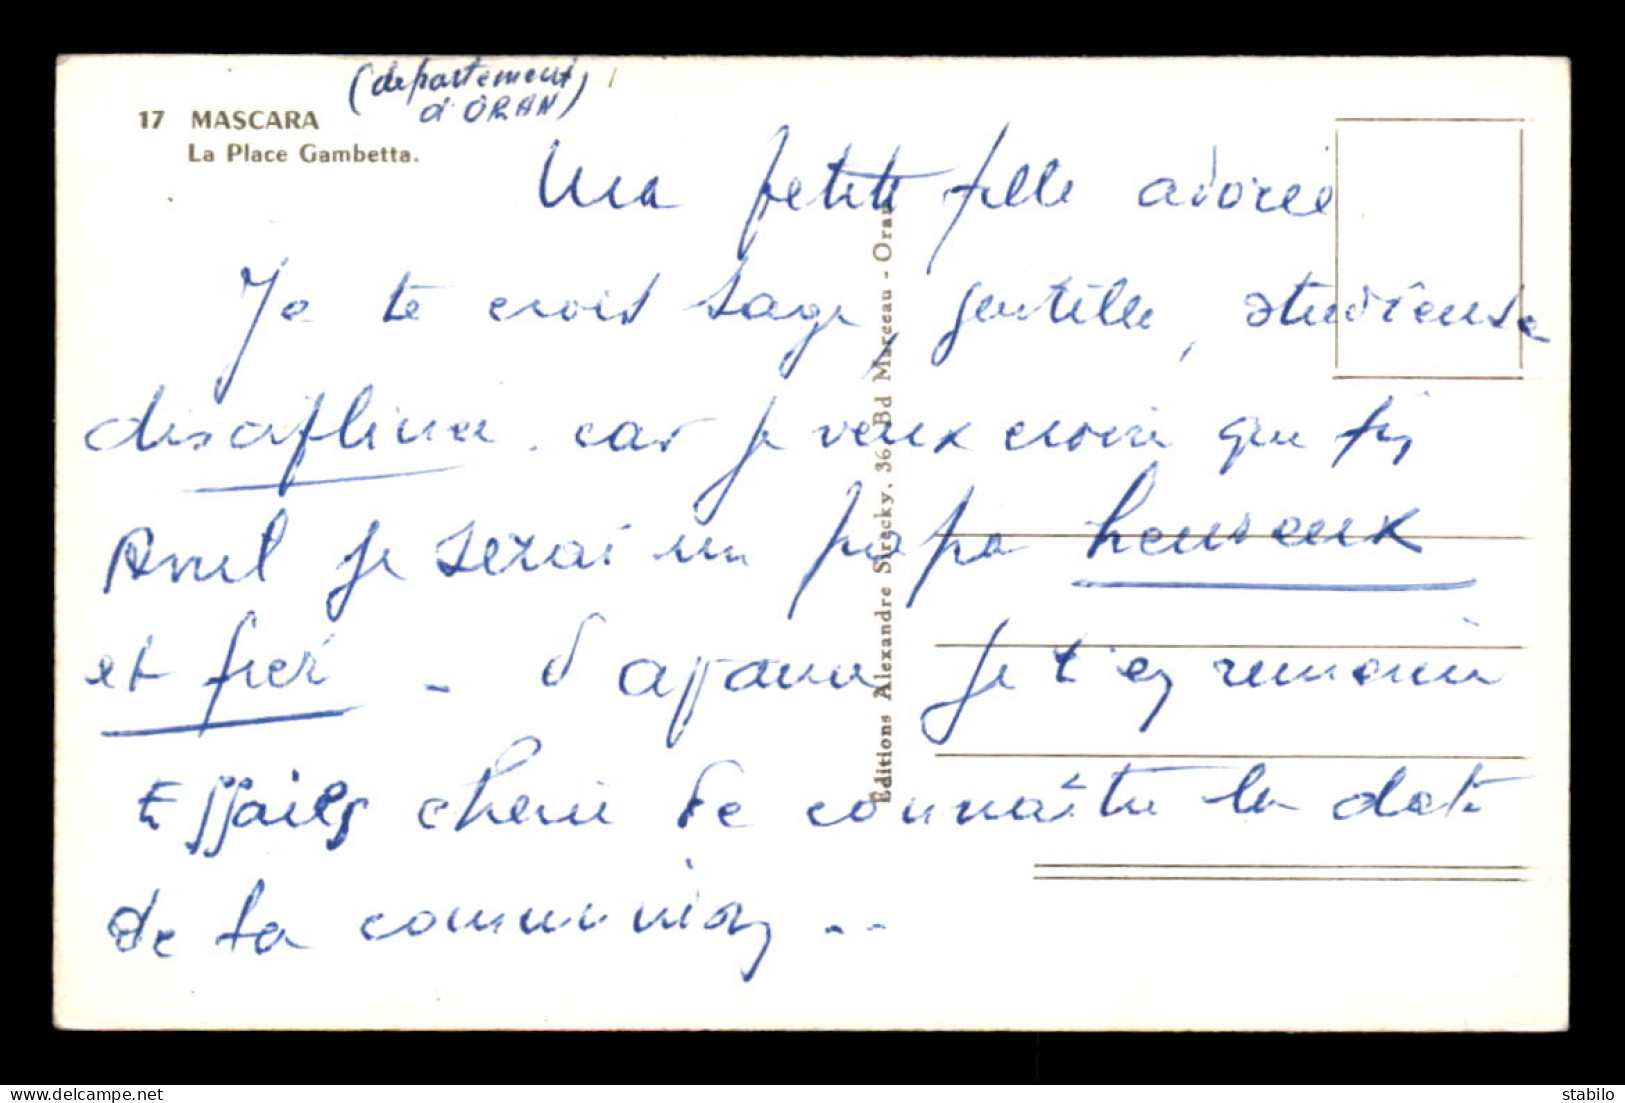 (departement
d'ORAN)
17 MASCARA
La Place Gambetta.
Ma petite fille adorée
Je te crois sage, gentille, studieuse
disciplinée. car je veux croire que fin
Avril je serai un papa heureux
et fier - d'avance je t'en remercie
Essaies cherie de connaître la date
de ta communion ...
Editions Alexandre Sirecky, 36, Bd Marceau - Oran
www.delcampe.net
slodsbv